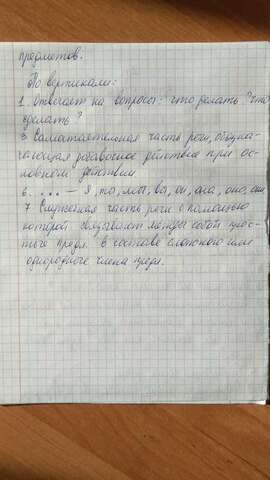 предметов.
По вертикали:
1. Отвечает на вопросы: что делать? что
сделать?
3. Самостоятельная часть речи, обозна-
чающая добавочное действие при ос-
новном действии
6. . . . — я, ты, мы, вы, он, она, оно, они
7. Служебная часть речи с помощью
которой связывают между собой прос-
тые предл. в составе сложного или
однородные члена предл.